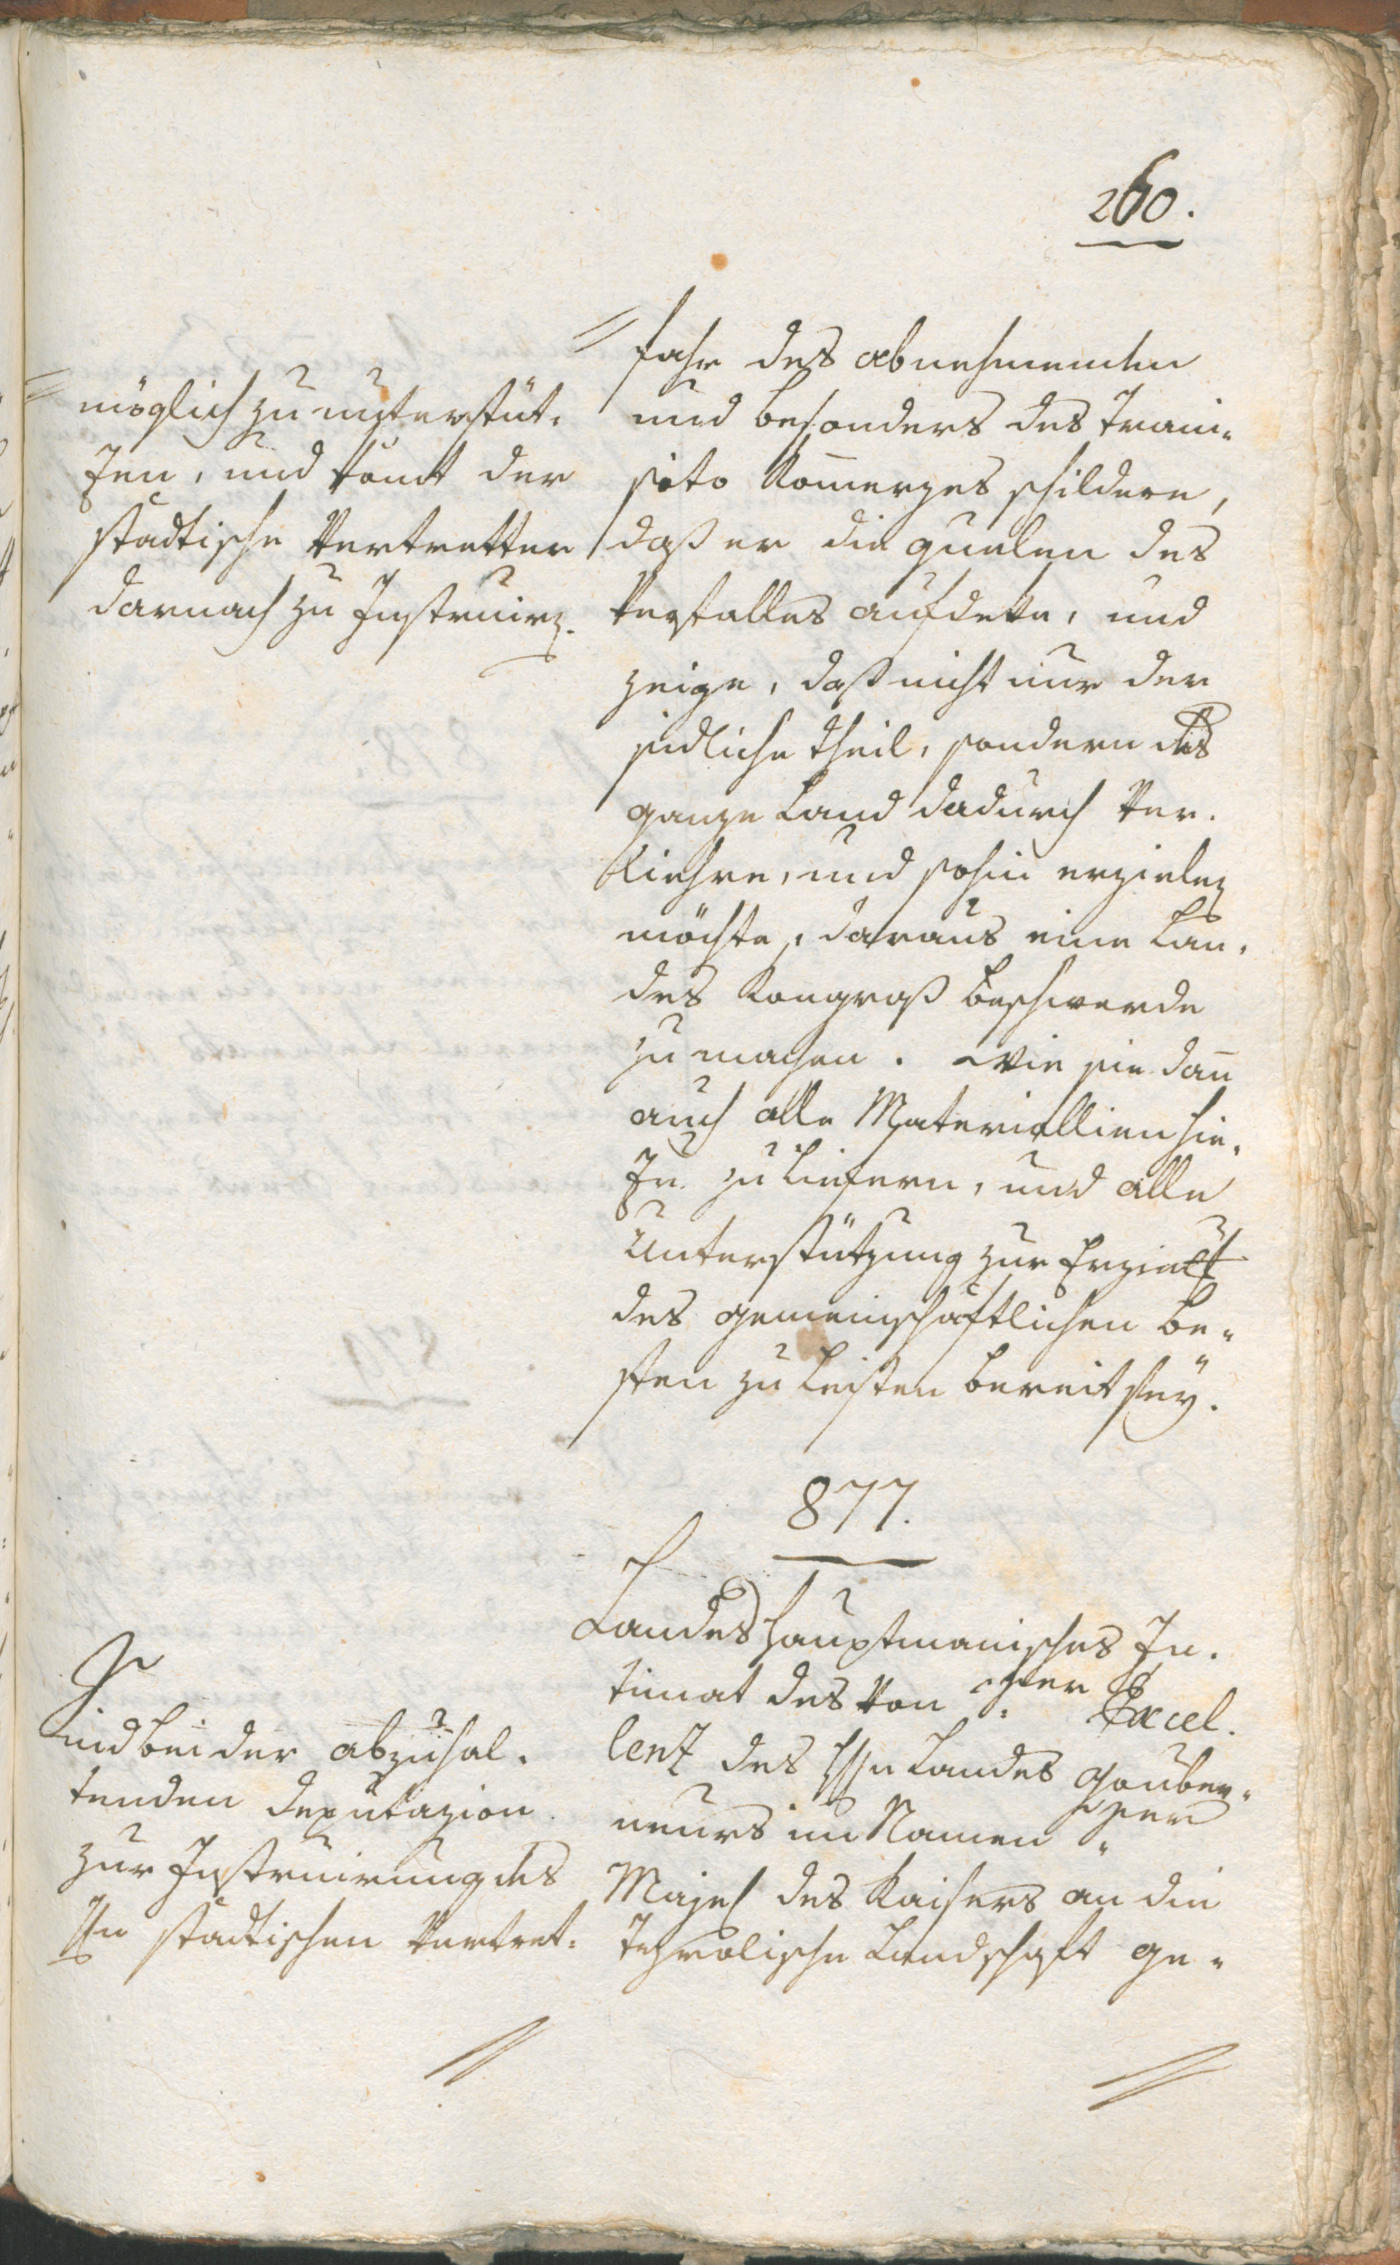 260.
möglich zu unterstüt¬
zen, und könt der
stadtische Vertretter
darnach zu Instruirn.
fahr des abnehmenden
und besonders des Tran¬
sito Komerzes schildere,
daß er die quelen des
Verfalles aufdeke, und
zeige, daß nicht nur der
sidliche theil, sondern das
ganze Land dadurch ver¬
liehre, und sohin erzielen
möchte, daraus eine Lan¬
des Kongreß beschwerde
zu machen. Wie sie dan
auch alle Materiallien hie¬
zu zu liefern, und alle
Unterstützung zur Erzielg
des gemeinschäftlichen be¬
sten zu leisten bereit sey.
877.
Landeshauptmanisches In¬
timat des von Sr Excel¬
lenz des Hn Landes Gouber¬
neurs im Namen Sr
Majest des Kaisers an die
Tyrolische Landschaft ge¬
Wird bei der abzuhal¬
tenden deputazion
zur Instruirung des
Hn stadtischen Vertret¬